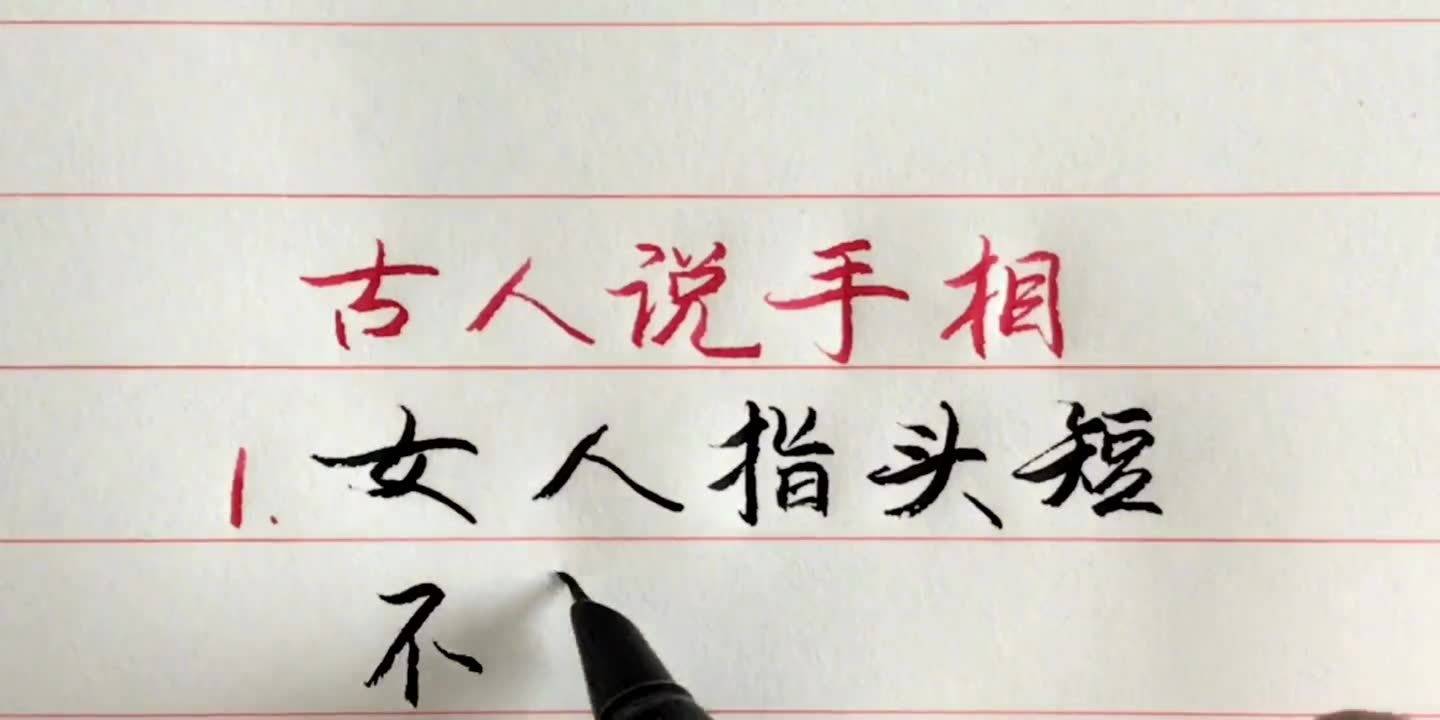 古人说手相
1.女人指头短
不